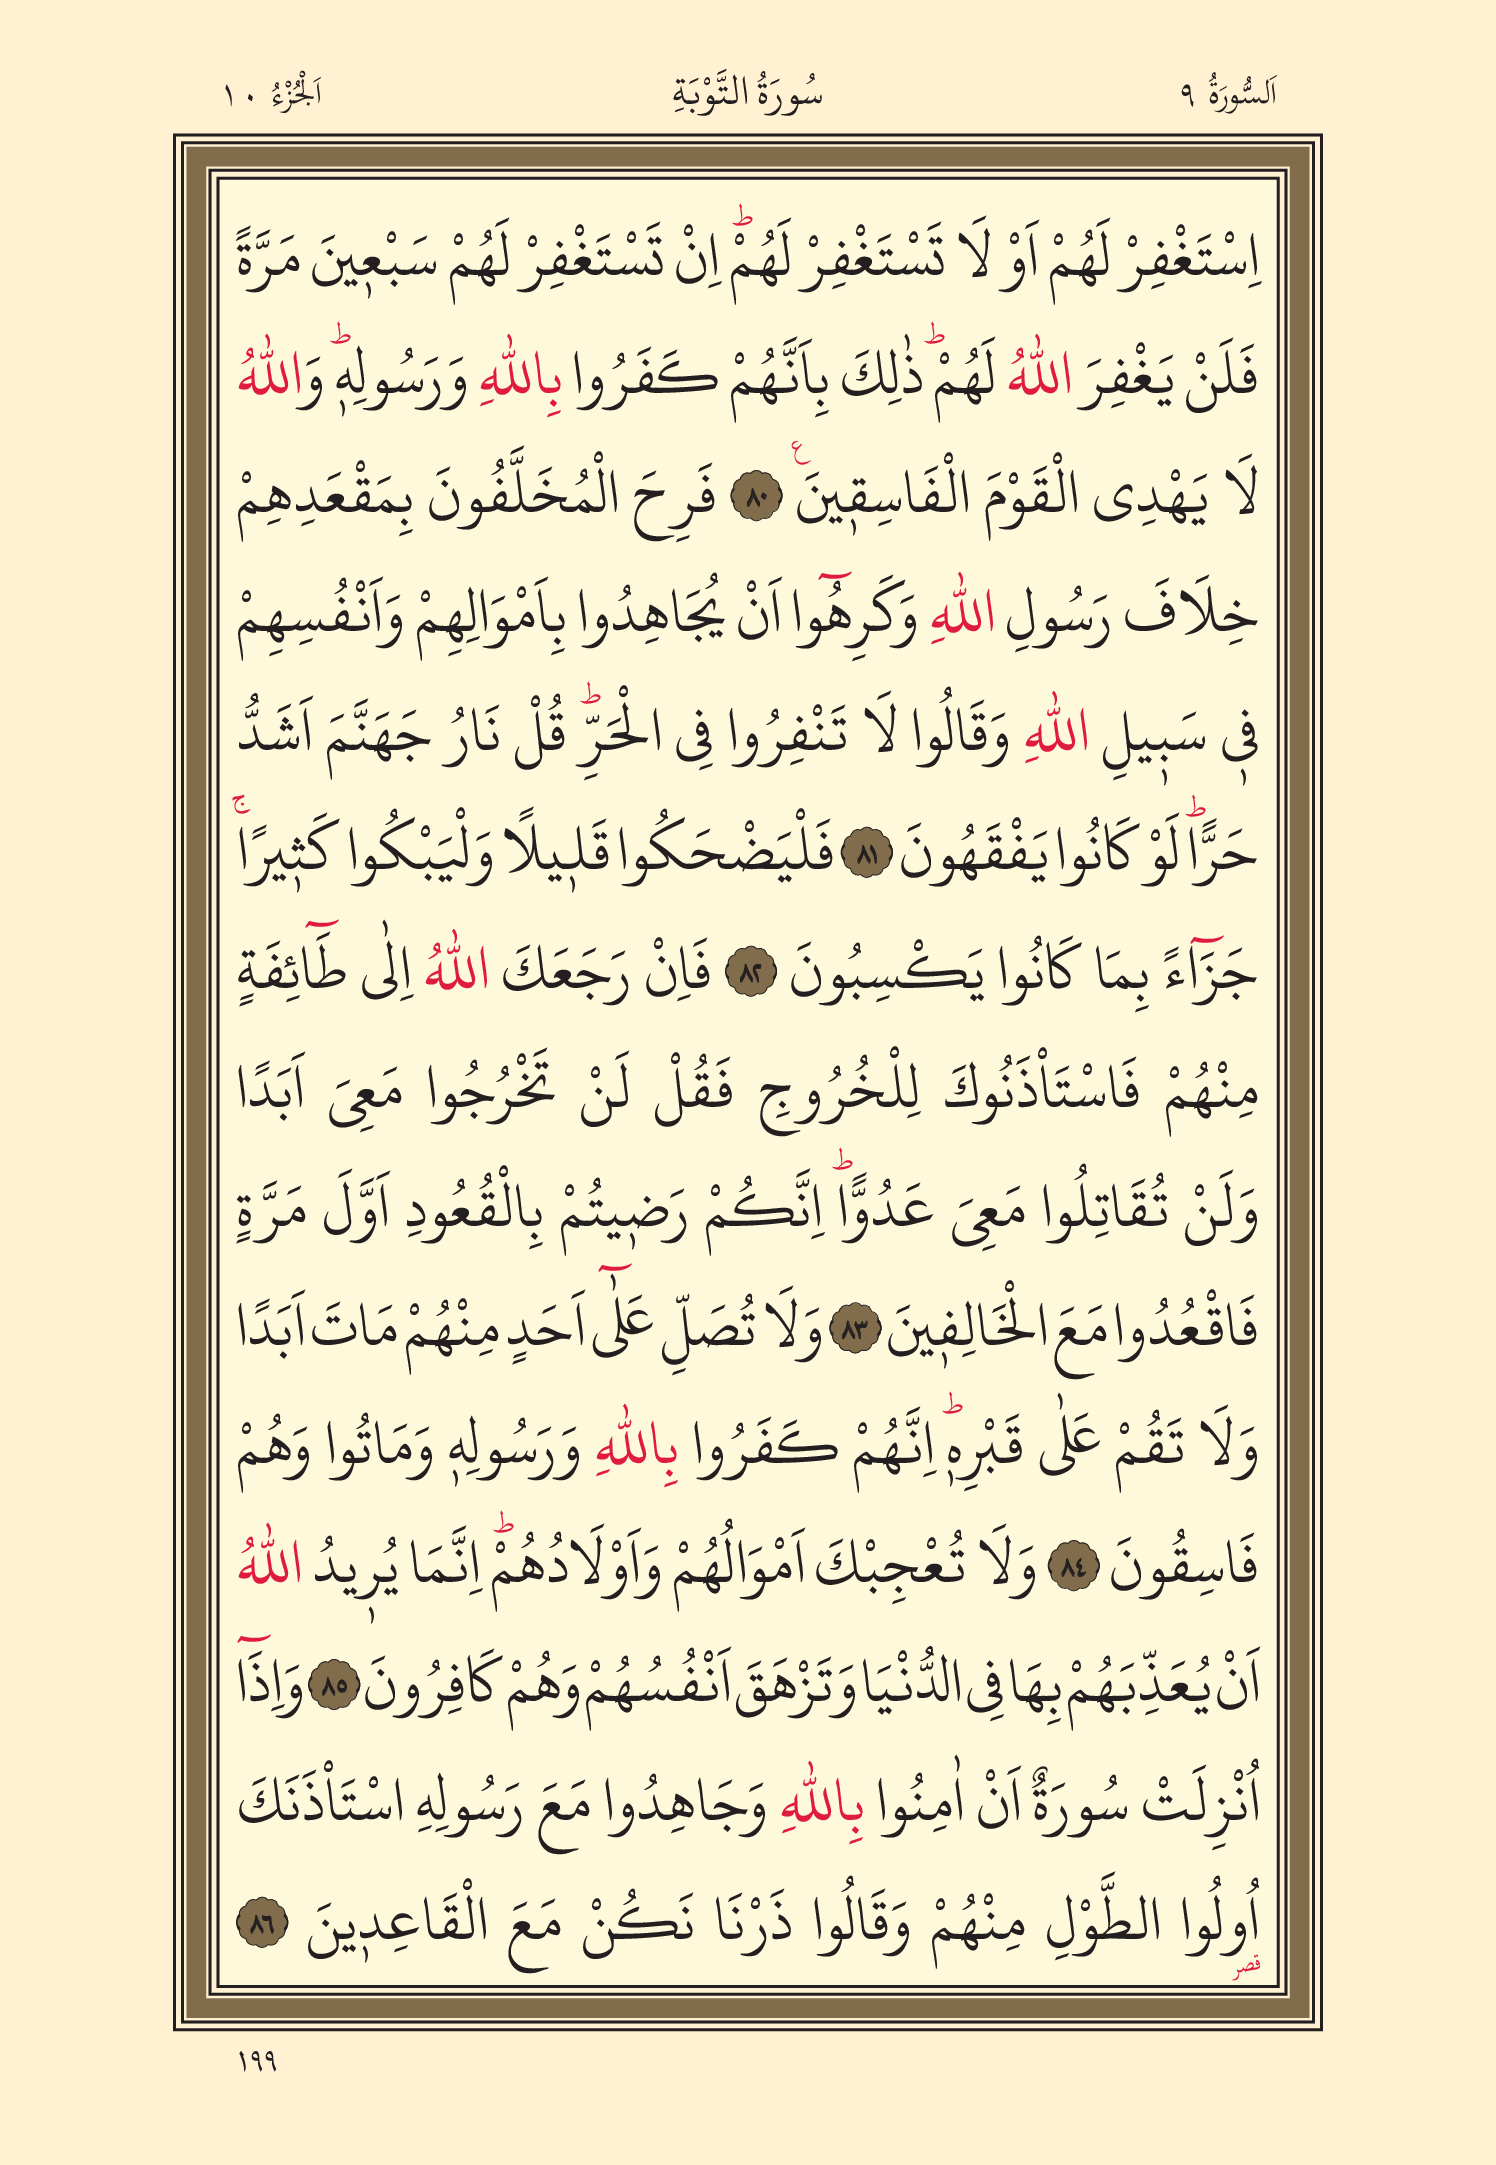 اَلسُّورَةُ ٩ سُورَةُ التَّوْبَةِ اَلْجُزْءُ ١٠
اِسْتَغْفِرْ لَهُمْ اَوْ لَا تَسْتَغْفِرْ لَهُمْۜ اِنْ تَسْتَغْفِرْ لَهُمْ سَبْعٖينَ مَرَّةً
فَلَنْ يَغْفِرَ اللّٰهُ لَهُمْۜ ذٰلِكَ بِاَنَّهُمْ كَفَرُوا بِاللّٰهِ وَرَسُولِهٖۜ وَاللّٰهُ
لَا يَهْدِى الْقَوْمَ الْفَاسِقٖينَࣖ ﴿٨٠﴾ فَرِحَ الْمُخَلَّفُونَ بِمَقْعَدِهِمْ
خِلَافَ رَسُولِ اللّٰهِ وَكَرِهُٓوا اَنْ يُجَاهِدُوا بِاَمْوَالِهِمْ وَاَنْفُسِهِمْ
فٖى سَبٖيلِ اللّٰهِ وَقَالُوا لَا تَنْفِرُوا فِى الْحَرِّۜ قُلْ نَارُ جَهَنَّمَ اَشَدُّ
حَرًّاۜ لَوْ كَانُوا يَفْقَهُونَ ﴿٨١﴾ فَلْيَضْحَكُوا قَلٖيلًا وَلْيَبْكُوا كَثٖيرًاۚ
جَزَٓاءً بِمَا كَانُوا يَكْسِبُونَ ﴿٨٢﴾ فَاِنْ رَجَعَكَ اللّٰهُ اِلٰى طَٓائِفَةٍ
مِنْهُمْ فَاسْتَاْذَنُوكَ لِلْخُرُوجِ فَقُلْ لَنْ تَخْرُجُوا مَعِىَ اَبَدًا
وَلَنْ تُقَاتِلُوا مَعِىَ عَدُوًّاۜ اِنَّكُمْ رَضٖيتُمْ بِالْقُعُودِ اَوَّلَ مَرَّةٍ
فَاقْعُدُوا مَعَ الْخَالِفٖينَ ﴿٨٣﴾ وَلَا تُصَلِّ عَلٰٓى اَحَدٍ مِنْهُمْ مَاتَ اَبَدًا
وَلَا تَقُمْ عَلٰى قَبْرِهٖۜ اِنَّهُمْ كَفَرُوا بِاللّٰهِ وَرَسُولِهٖ وَمَاتُوا وَهُمْ
فَاسِقُونَ ﴿٨٤﴾ وَلَا تُعْجِبْكَ اَمْوَالُهُمْ وَاَوْلَادُهُمْۜ اِنَّمَا يُرٖيدُ اللّٰهُ
اَنْ يُعَذِّبَهُمْ بِهَا فِى الدُّنْيَا وَتَزْهَقَ اَنْفُسُهُمْ وَهُمْ كَافِرُونَ ﴿٨٥﴾ وَاِذَٓا
اُنْزِلَتْ سُورَةٌ اَنْ اٰمِنُوا بِاللّٰهِ وَجَاهِدُوا مَعَ رَسُولِهِ اسْتَاْذَنَكَ
اُولُوا الطَّوْلِ مِنْهُمْ وَقَالُوا ذَرْنَا نَكُنْ مَعَ الْقَاعِدٖينَ ﴿٨٦﴾
قصر
١٩٩